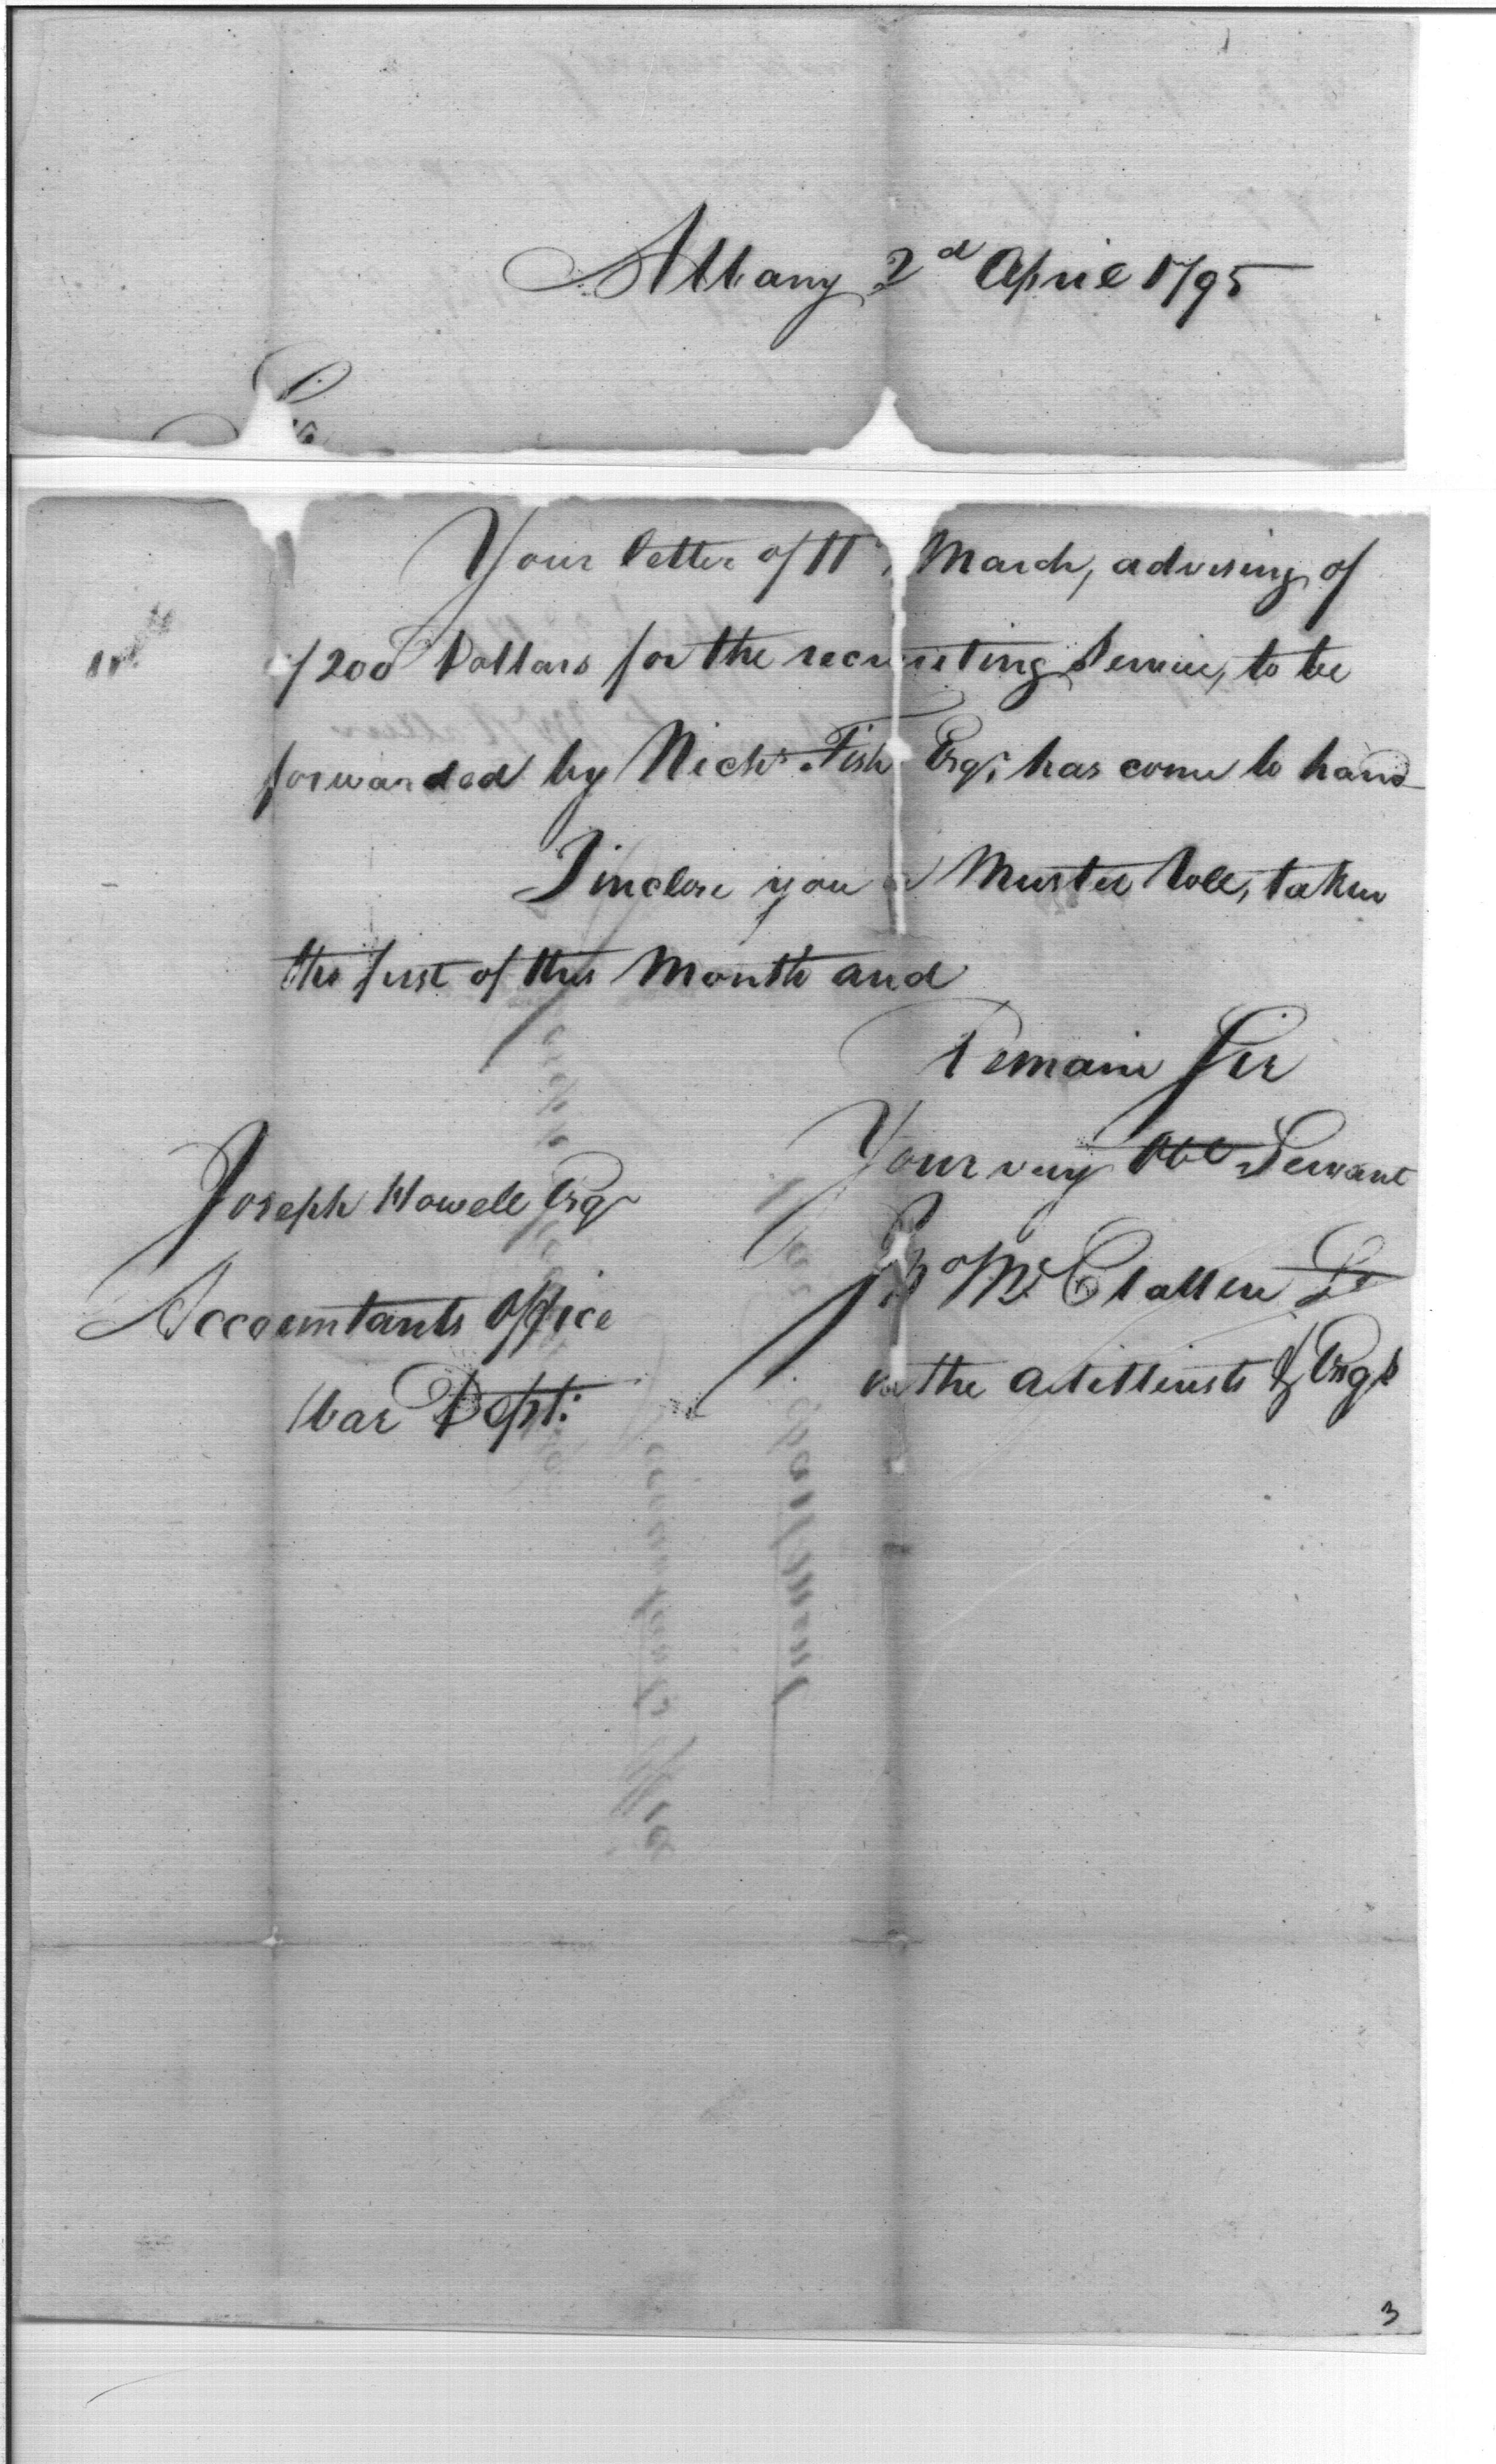 Albany 2d April 1795
Sir
Your letter of 11th March, advising of
of 200 Dollars for the recruiting Service, to be
forwarded by Nichs. Fish Esqr. has come to hand
I inclose you a Muster Roll, taken
the first of this Month and
Remain Sir
Your very Obt Servant
McClallen Lt
in the Artillerists & Engrs
Joseph Howell Esqr
Accountants Office
War Dept:
3